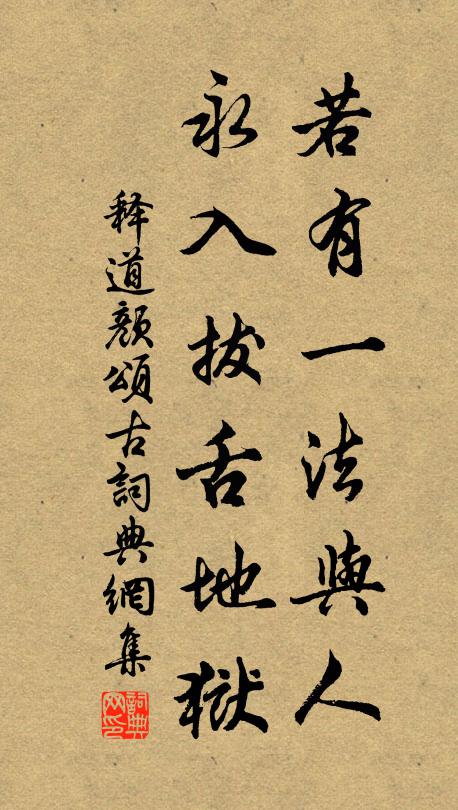 若有一法與人
永入拔舌地獄
释道顏頌古詞典網集
詞典网印